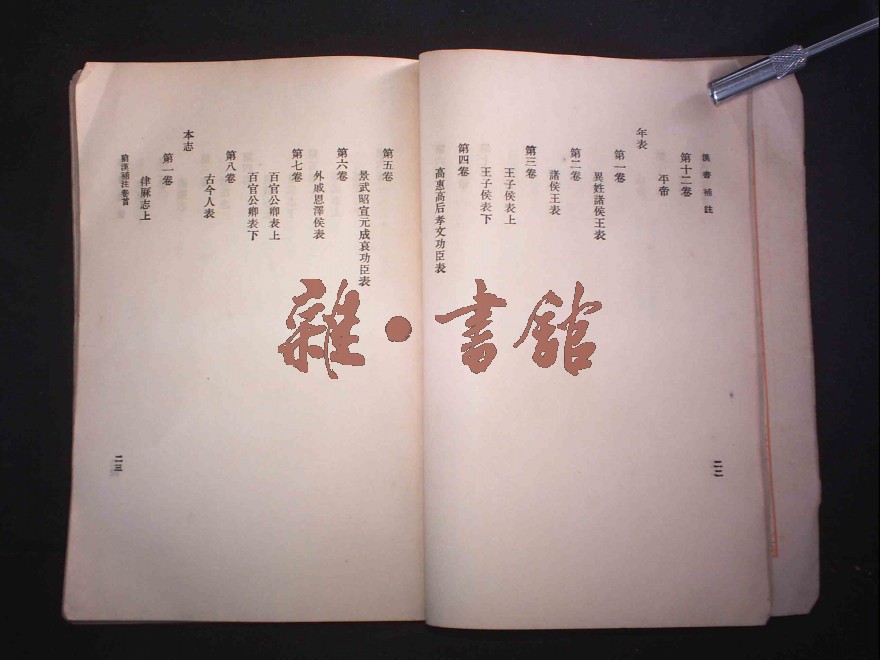 漢書補註
第十二卷
平帝
年表
第一卷
異姓諸侯王表
第二卷
諸侯王表
第三卷
王子侯表上
王子侯表下
第四卷
高惠高后孝文功臣表
二二
第五卷
景武昭宣元成哀功臣表
第六卷
外戚恩澤侯表
第七卷
百官公卿表上
百官公卿表下
第八卷
古今人表
本志
第一卷
律厤志上
前漢補注卷首
二三
雜·書館